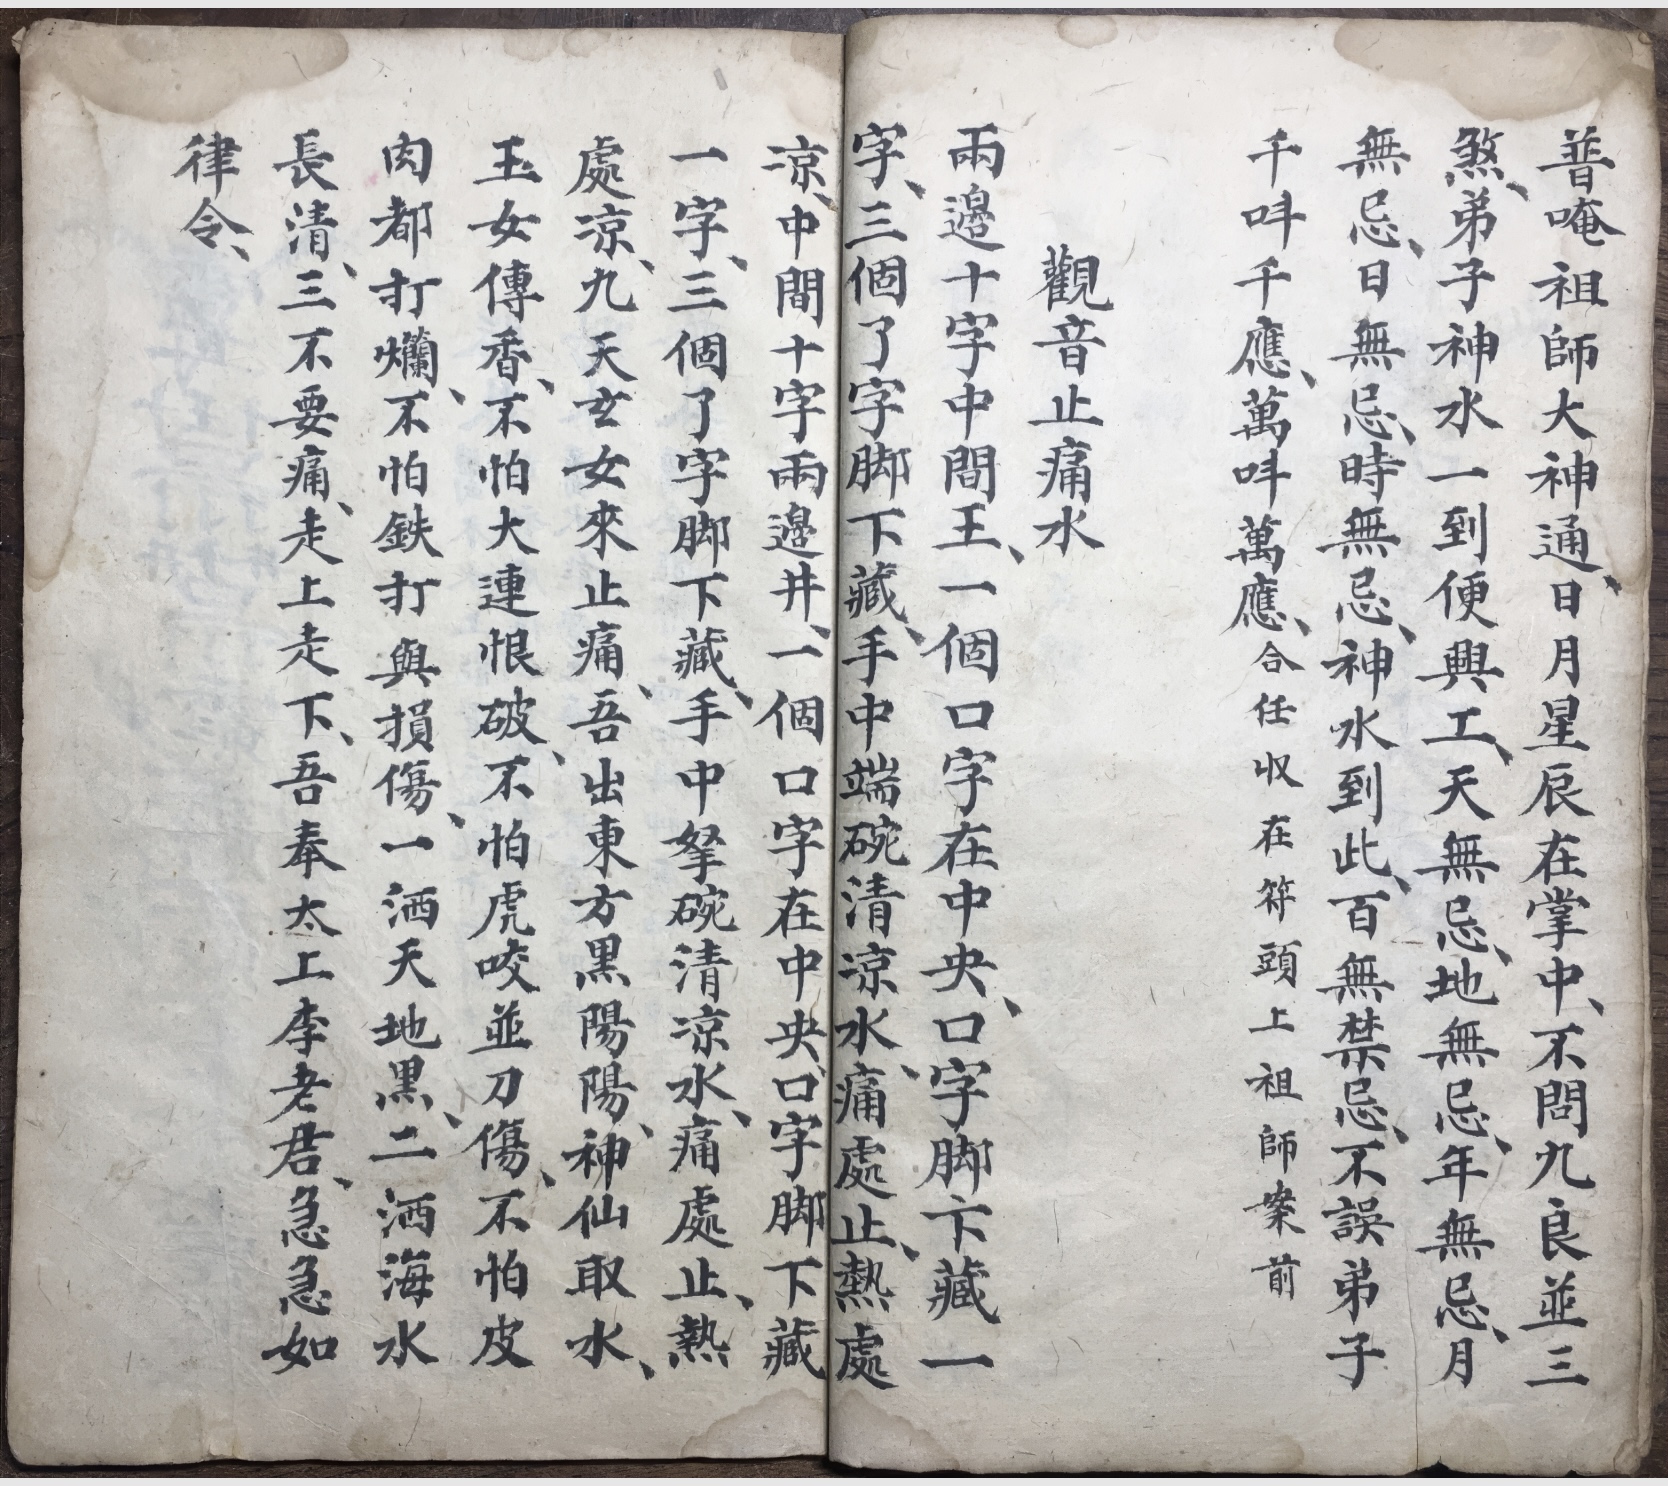 普唵祖師大神通、日月星辰在掌中、不問九良並三
煞、弟子神水一到便興工、天無忌、地無忌、年無忌、月
無忌、日無忌、時無忌、神水到此、百無禁忌、不誤弟子
千吽千應、萬吽萬應、合任收在符頭上祖師案前
觀音止痛水
兩邊十字中間王、一個口字在中央、口字脚卞藏一
字、三個了字脚下藏、手中端碗清凉水、痛處止、熱處
凉、中間十字兩邊井、一個口字在中央、口字脚下藏
一字、三個了字脚下藏、手中拏碗清凉水、痛處止、熱
處凉、九天玄女來止痛、吾出東方黑陽陽、神仙取水、
玉女傳香、不怕大連恨破、不怕虎咬並刀傷、不怕皮
肉都打爛、不怕鉄打與損傷、一洒天地黑、二洒海水
長清、三不要痛、走上走下、吾奉太上李老君、急急如
律令、